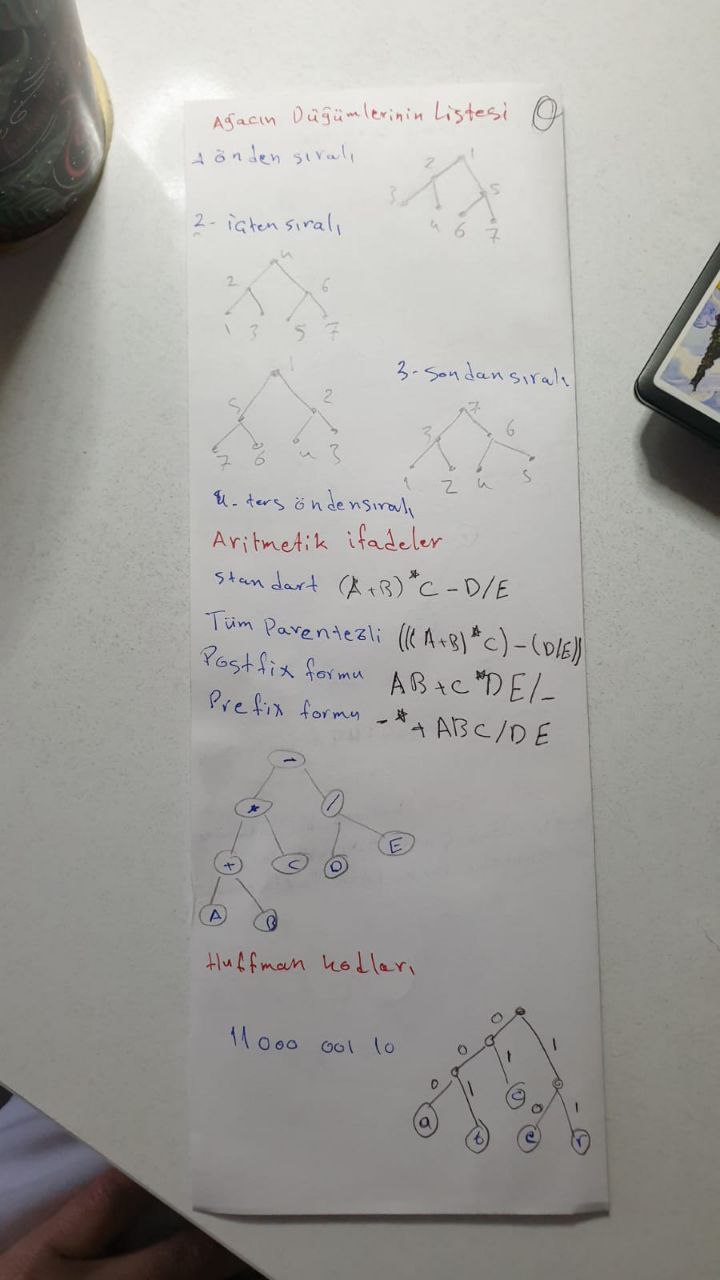 Ağacın Düğümlerinin Listesi
1 önden sıralı
1
2
3
5
4
6
7
2- içten sıralı
4
2
6
1 3 5 7
1
5
2
7 6 4 3
3- Sondansıralı
7
3
6
1 2 4 5
4- ters öndensıralı
Aritmetik ifadeler
Standart (A+B)*C-D/E
Tüm Parentezli (((A+B)*C)-(D/E))
Postfix formu AB+C*DE/-
Prefix formu -*+ABC/DE
-
* /
+ C D E
A B
Huffman kodları
11000 001 10
0 1
0 1
0 1 c 0 1
a b e r